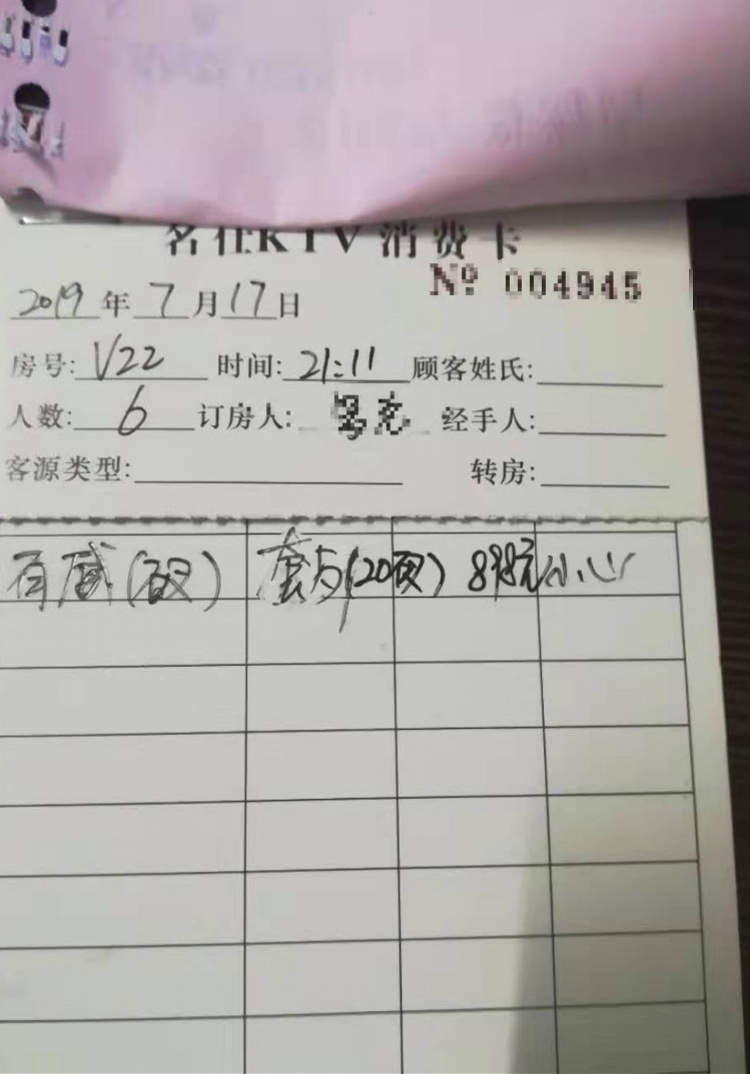 名仕KTV消费卡
Nº 004945
2019年7月17日
房号: V22 时间: 21:11 顾客姓氏:
人数: 6 订房人: 经手人:
客源类型: 转房:
百威( ) 套 (20 ) 898元 小心